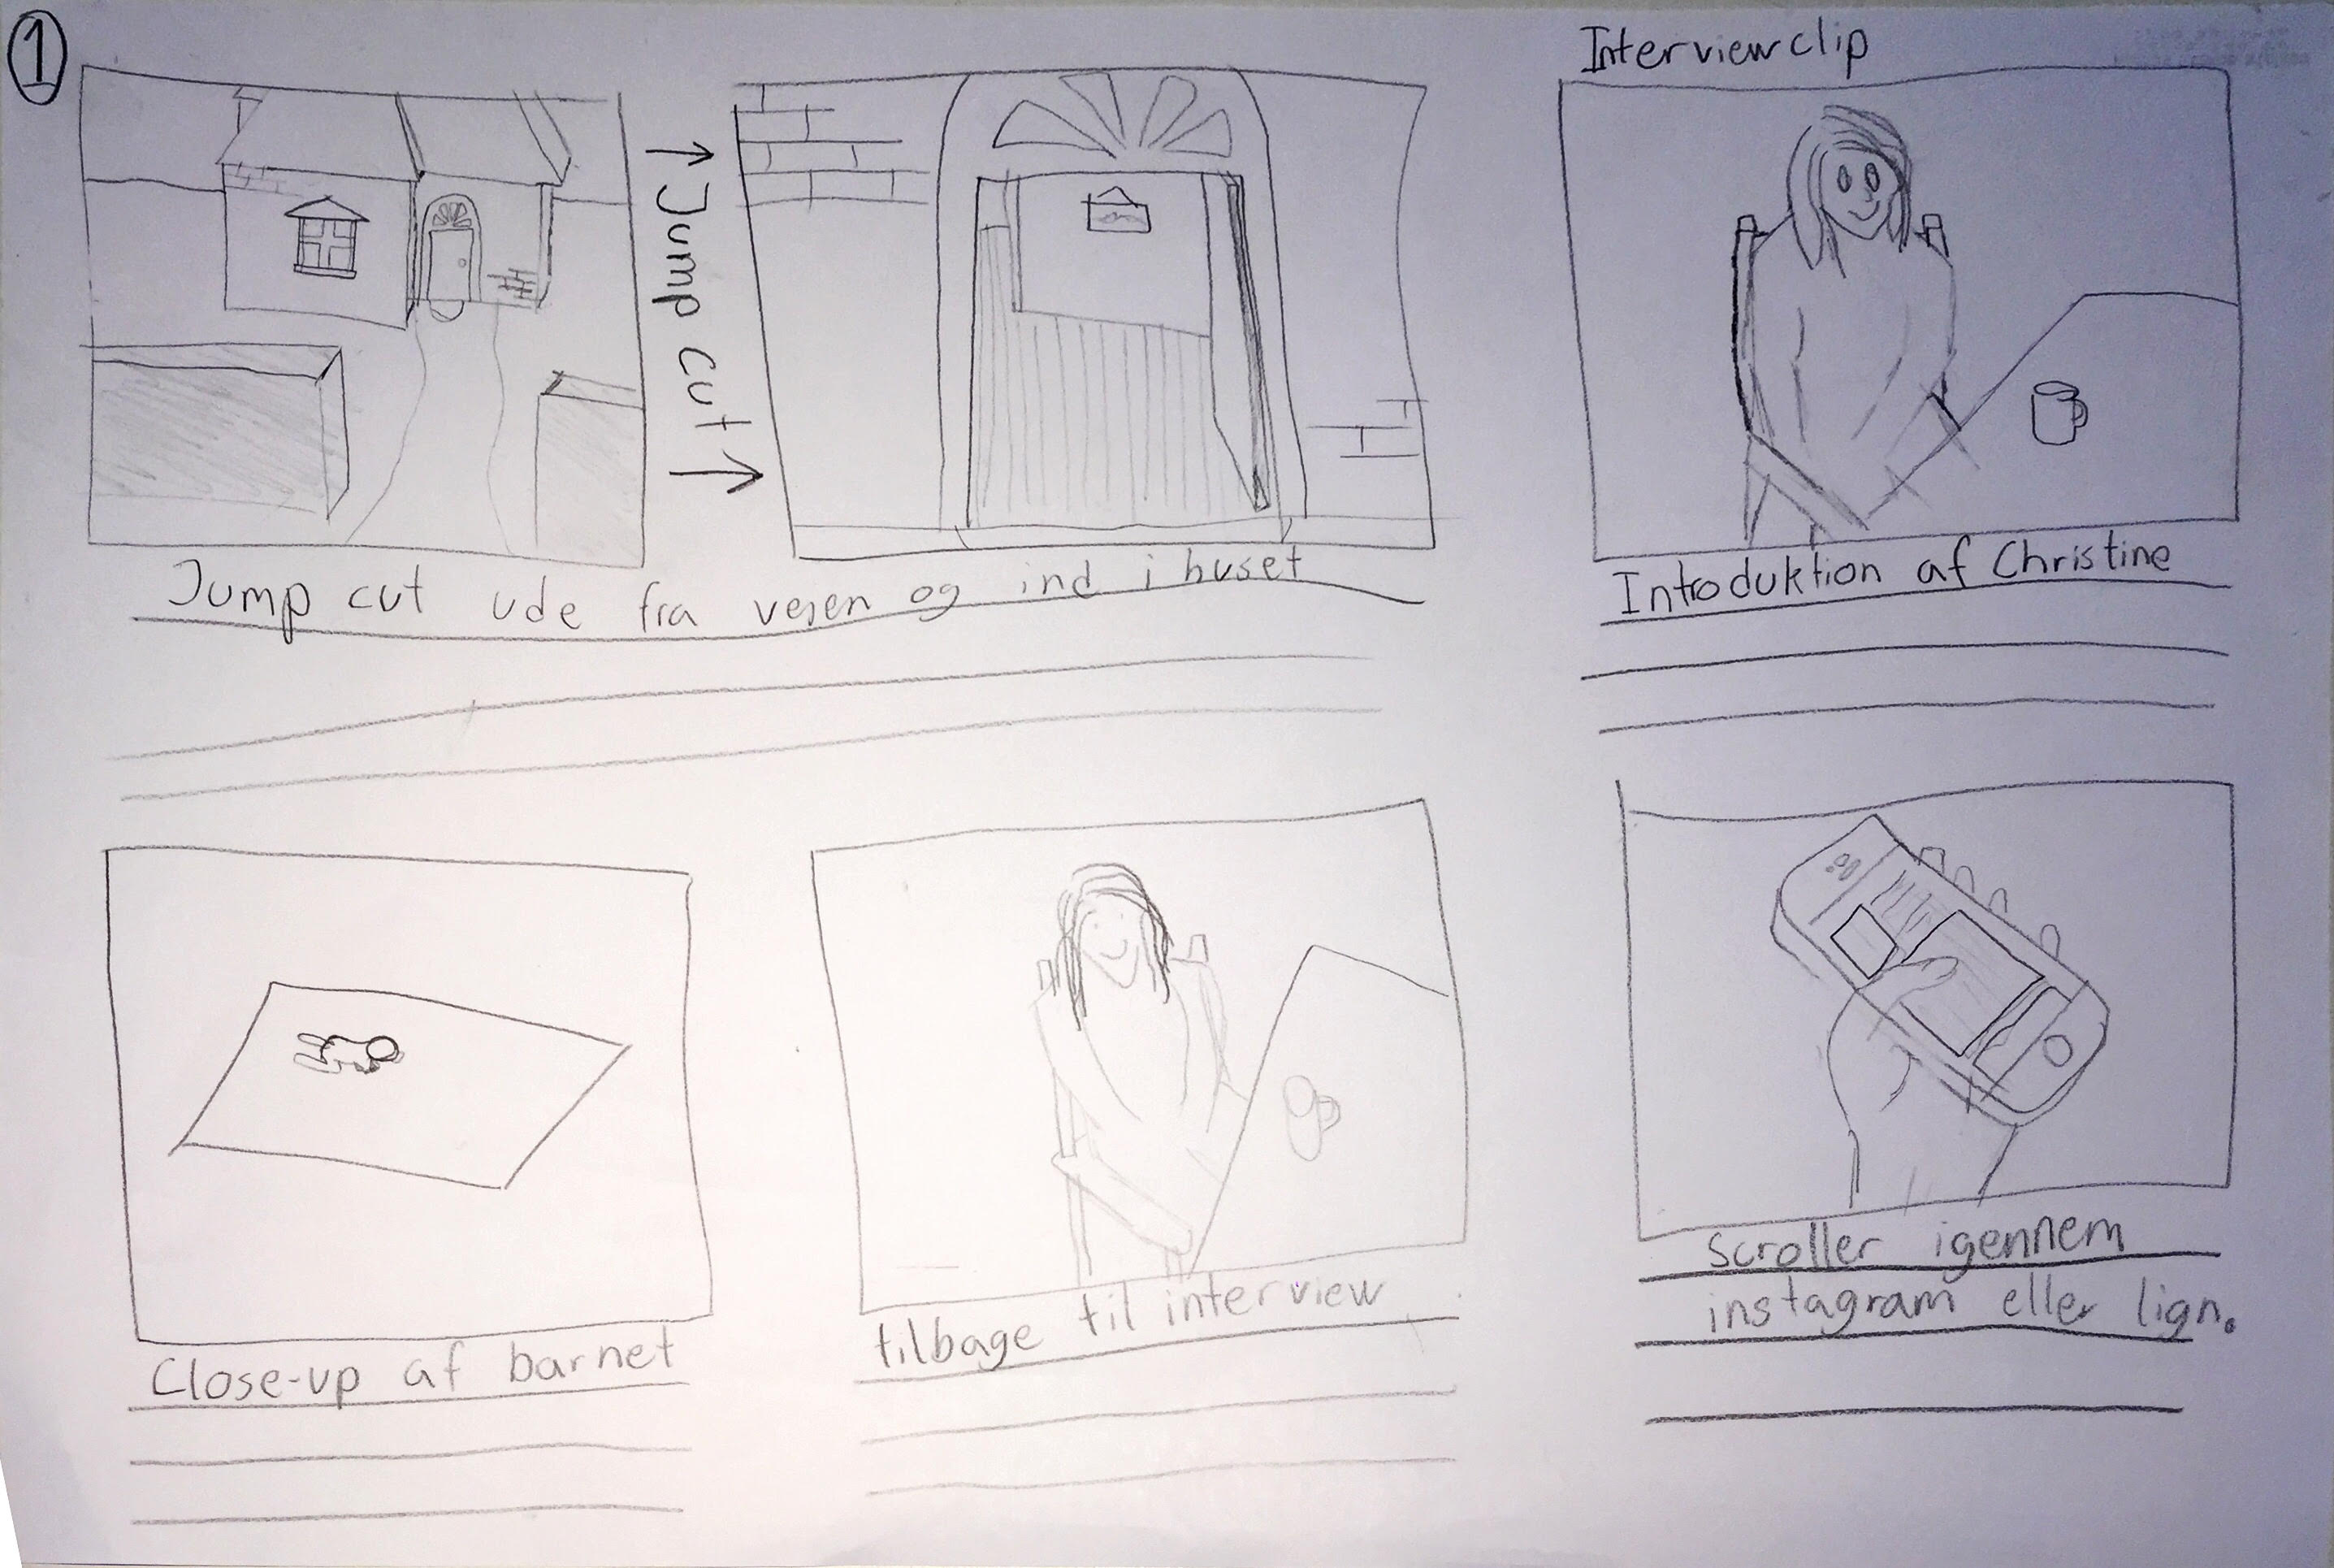 1
Interviewclip
Jump cut
Jump cut ude fra vejen og ind i huset
Introduktion af Christine
Close-up af barnet
tilbage til interview
Scroller igennem
instagram eller lign.